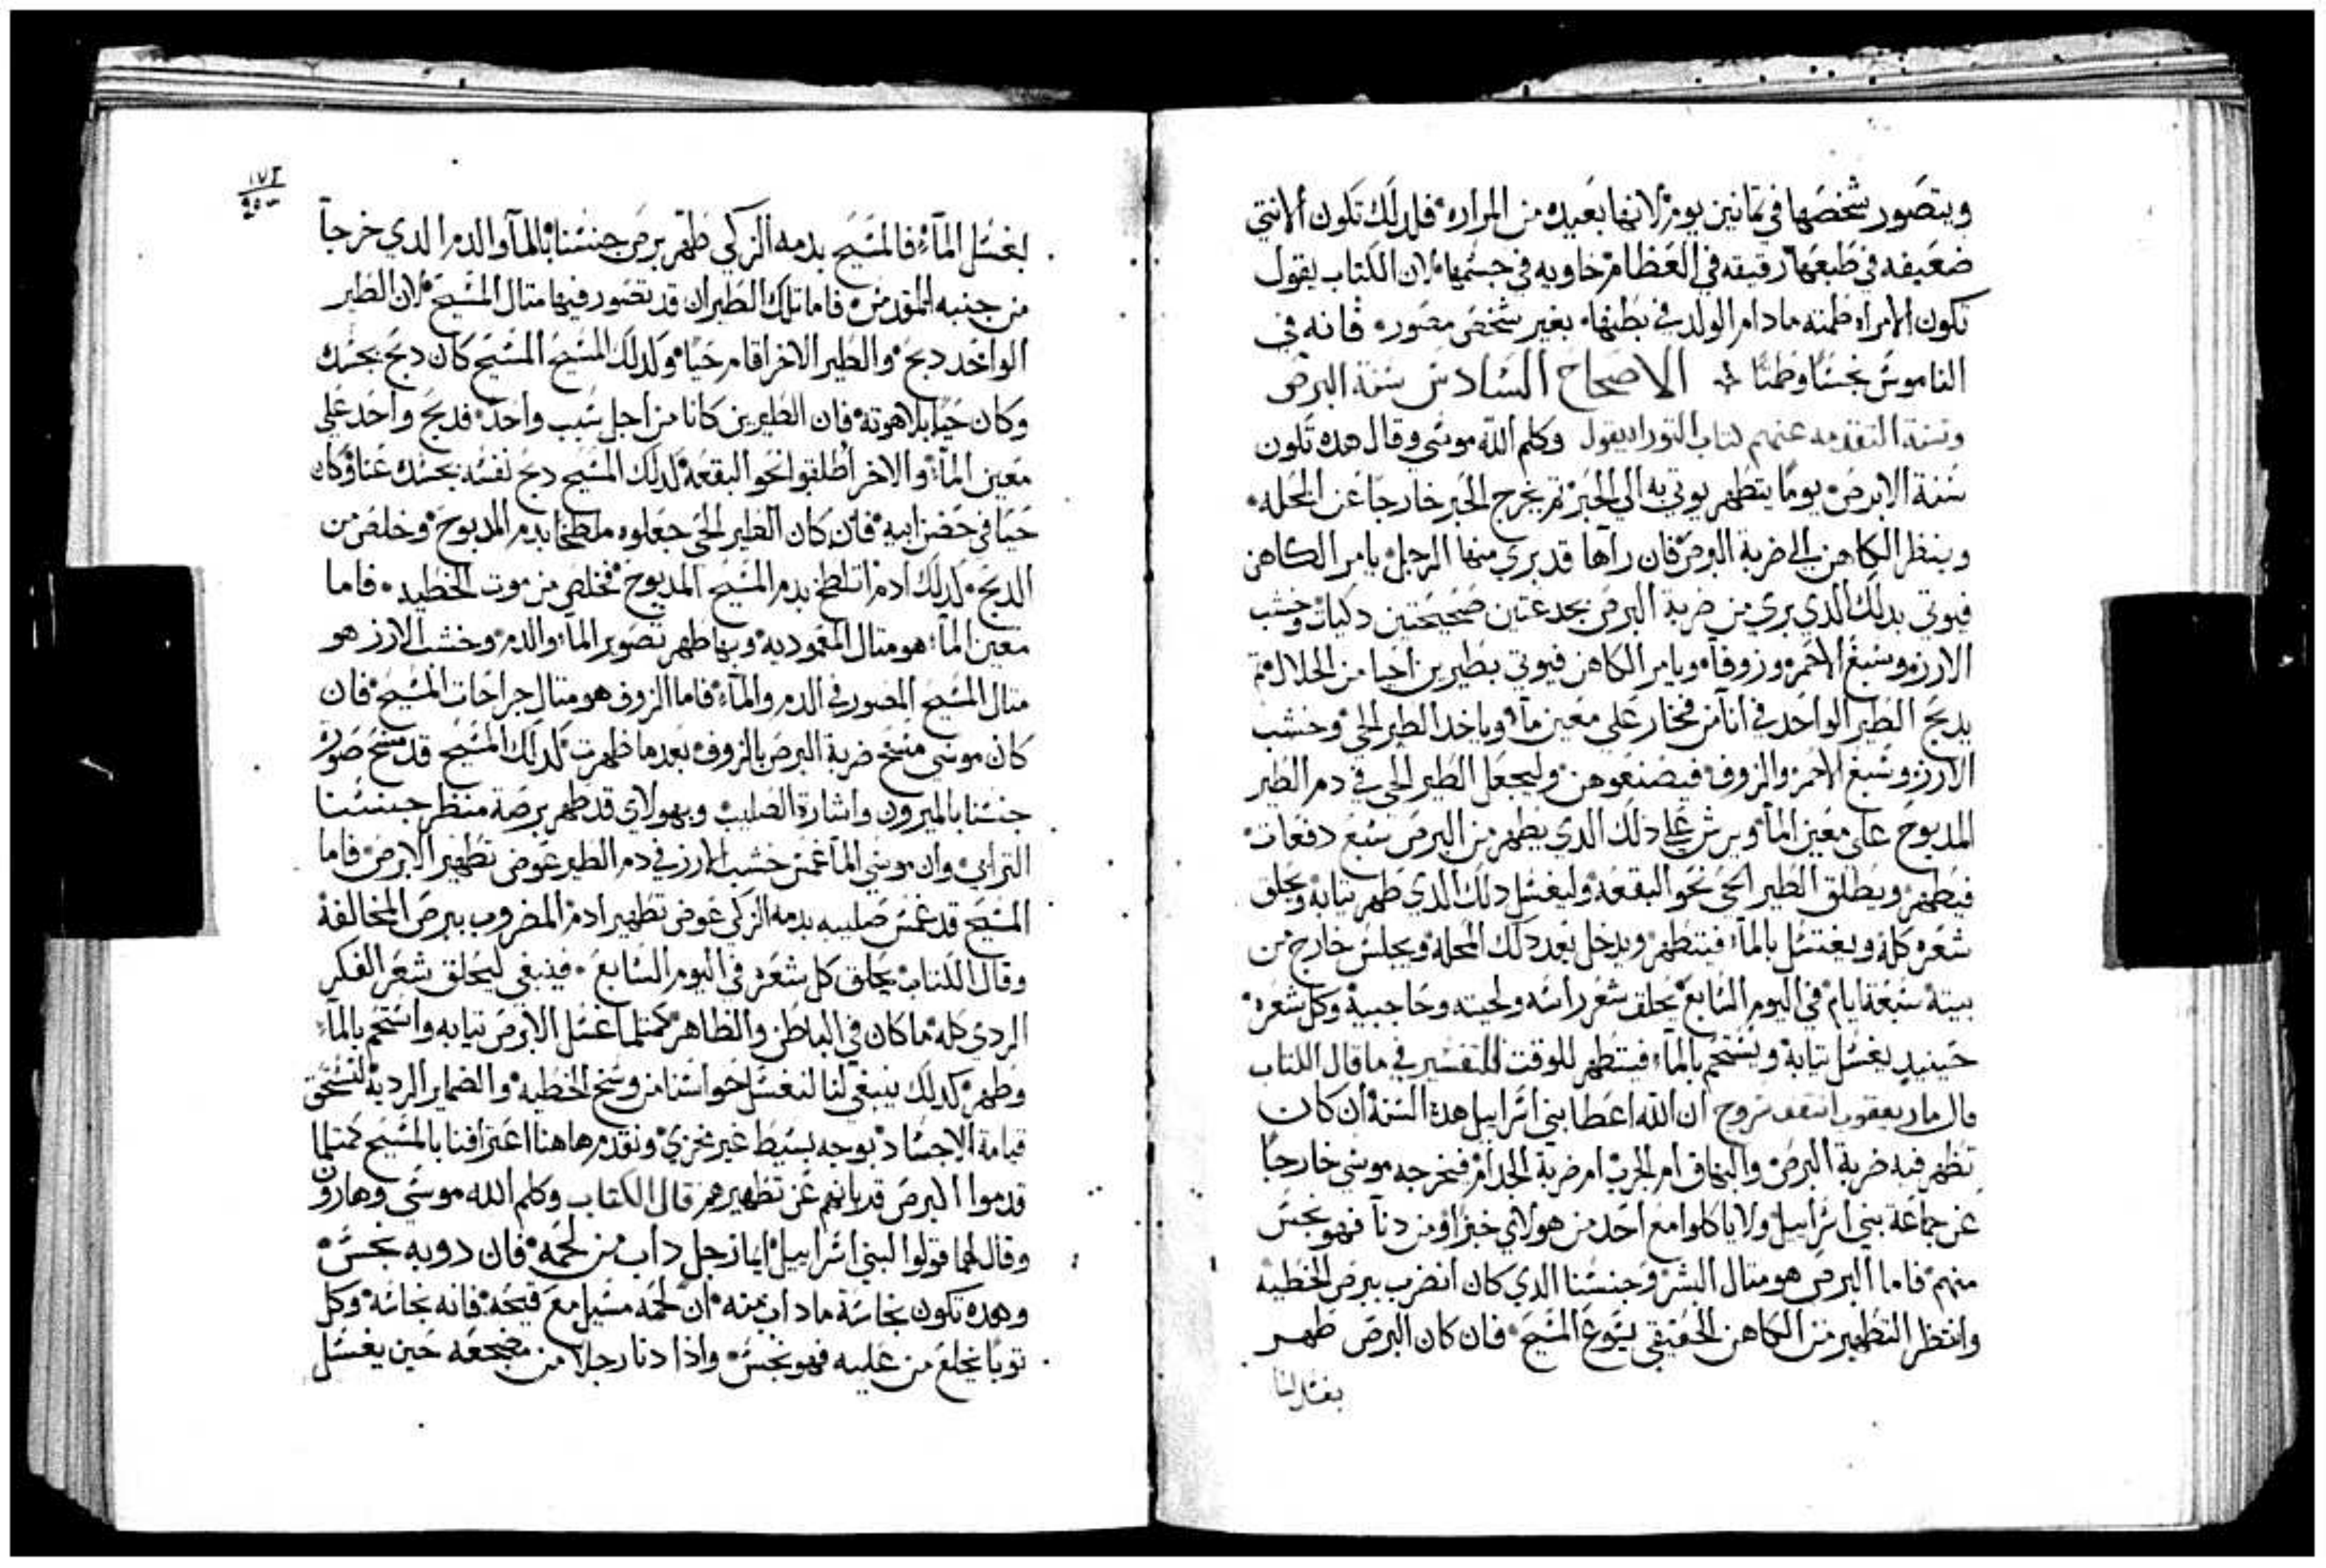 ويتصور شخصها في تمانين يوم لانها بعيده من المراره فلدلك تكون الانتي
ضعيفه في طبعها رقيقه في العظام خاويه في جسمها لان الكتاب يقول
تكون الامراه طمته مادام الولد في بطنها بغير شخص مصوره فانه في
الناموس نجسا وطمتا الاصحاح السادس سنة البرص
وسنة التقدمه عنهم كتاب التوراه يقول وكلم الله موسى وقال هده تكون
سنة الابرص يوما يتطهر يوتي به الي الحبر تم يخرج الحبر خارجا عن المحله
وينظر الكاهن الي ضربة البرص فان راها قد بري منها الرجل يامر الكاهن
فيوتي بدلك الدي بري من ضربة البرص بجدعتين صحيحتين دكيات وخشب
الارز وسبغ الاحمر وزوفا ويامر الكاهن فيوتي بطيرين احيا من الحلال تم
يدبح الطير الواحد في انا من فخار علي معين ما وياخد الطير الحي وخشب
الارز وسبغ الاحمر والزوف فيصنعوهن وليجعل الطير الحي في دم الطير
المدبوح على معين الما ويرش علي دلك الدي يطهر من البرص سبع دفعات
فيطهر ويطلق الطير الحي نحو البقعه وليغسل دلك الدي طهر تيابه ويحلق
شعره كله ويغتسل بالماء فيتطهر ويدخل بعد دلك المحله ويجلس خارج من
بيته سبعة ايام في اليوم السابع يحلق شعر راسه ولحيته وحاجبيه وكل شعره
حينيد يغسل تيابه ويستحم بالماء فيتطهر للوقت التفسير في ما قال الكتاب
قال مار يعقوب اسقف سروج ان الله اعطا بني اسراييل هده السنة ان كان
تظهر فيه ضربة البرص والبهاق ام الجرب ام ضربة الجدام فيخرجه موسى خارجا
عن جماعة بني اسراييل ولا ياكلوا مع احد من هولاي خبزا ومن دنا فهو نجس
منهم فاما البرص هو متال البشر وجنسنا الدي كان انضرب ببرص الخطيه
وانتظر التطهير من الكاهن الحقيقي يسوع المسيح فان كان البرص طهر
بغسل الما
١٧٢
لغسل الماء فالمسيح بدمه الزكي طهر برص جنسنا بالما والدم الدي خرجا
من جنبه المقدس فاما تلك الطيران قد تصور فيها متال المسيح لان الطير
الواحد دبح والطير الاخر اقام حيا ولدلك المسيح المسيح كان دبح بجسده
وكان حيا بلاهوته فان الطيرين كانا من اجل سبب واحد فدبح واحد علي
معين الماء والاخر اطلقوا نحو البقعه كدلك المسيح دبح نفسه بجسده عنا وكان
حيا في حضن ابيه فان كان الطير الحي جعلوه ملطخا بدم المدبوح وخلص من
الدبح كدلك ادم اتلطخ بدم المسيح المدبوح فخلص من موت الخطيه فاما
معين الماء هو متال المعموديه وبها طهر تصوير الماء والدم وخشب الارز هو
متال المسيح المصور في الدم والماء فاما الزوف هو متال جراحات المسيح فان
كان موسى مسح ضربة البرص بالزوف بعد ما ظهرت كدلك المسيح قد مسح صورة
جنسنا بالميرون واشارة الصليب وبهولاي قد طهر برصة منظر جنسنا
الترابي وان موسي لما غمس خشب الارز في دم الطير عوض تطهير الابرص فاما
المسيح قد غمس صليبه بدمه الزكي عوض تطهير ادم المضروب ببرص المخالفة
وقال الكتاب يحلق كل شعره في اليوم السابع فينبغي ليحلق شعر الفكر
الردي كله ما كان في الباطن والظاهر كمتلما غسل الابرص تيابه واستحم بالماء
وطهر كدلك ينبغي لنا لنغسل حواسنا من وسخ الخطيه والضماير الرديه لنستحق
قيامة الاجساد بوجه بسيط غير مخزي ونقدم هاهنا اعترافنا بالمسيح كمتلما
قدموا البرص قدبانهم عن تطهيرهم قال الكتاب وكلم الله موسى وهارون
وقال لهما قولوا لبني اسراييل ايما رجل داب من لحمه فان دوبه نجس
وهده تكون نجاسة ما داب منه ان لحمه مسيل مع قيحه فانه نجاسه وكل
توبا يخلع من عليه فهو نجس وادا دنا رجلا من مضجعه حين يغسل